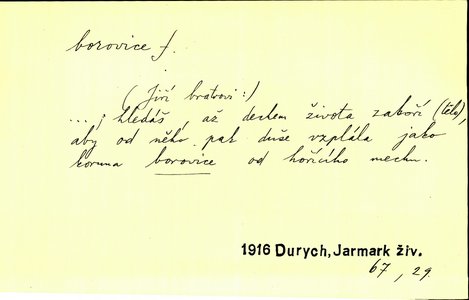 borovice f.
(Jiří bratrovi:)
...; hledáš, až dechem života zaboří (tělo),
aby od něho pak duše vzplála jako
koruna borovice od hořícího mechu.
1916 Durych, Jarmark živ.
67, 29.